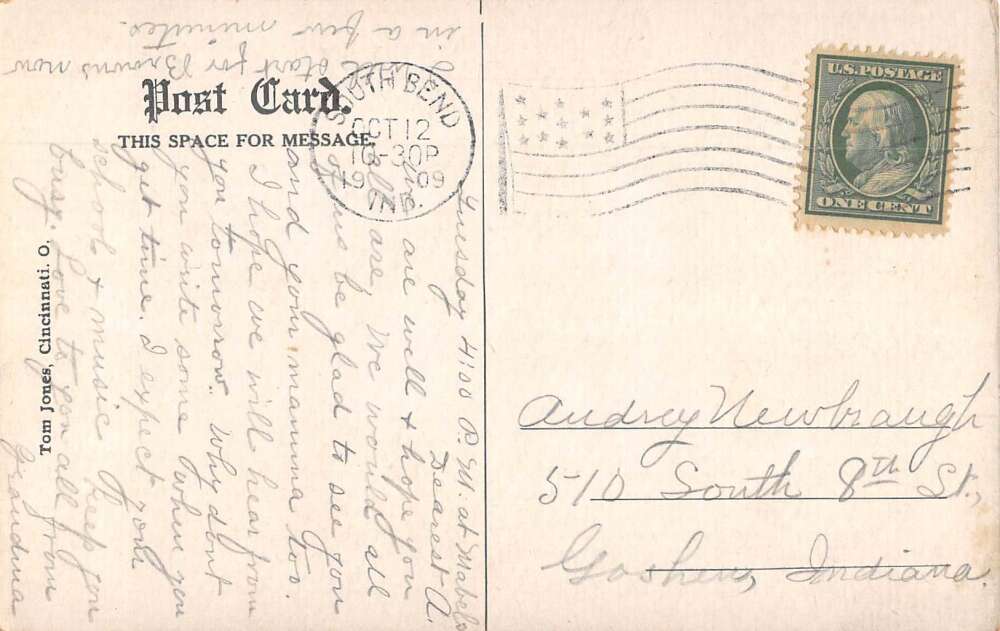 Post Card.
THIS SPACE FOR MESSAGE.
Tom Jones, Cincinnati. O.
SOUTH BEND
OCT 12
10-30P
1909
IND.
U.S. POSTAGE
ONE CENT
Tuesday 4:00 P. M. at Mabels
Dearest A.
We are well & hope you
all are. We would all
of us be glad to see you
and your mamma too.
I hope we will hear from
you tomorrow. Why dont
you write some when you
get time. I expect your
school & music keep you
busy. Love to you all from
Grandma
I'll start for Browns now
in a few minutes.
Audrey Newbraugh
510 South 8th St.,
Goshen, Indiana.